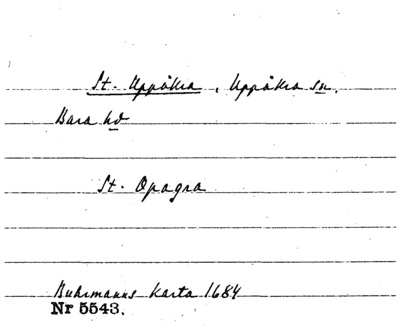 St. Uppåkra, Uppåkra sn.
Bara hd
St. Opagra
Buhrmanns Karta 1684
Nr 5543.